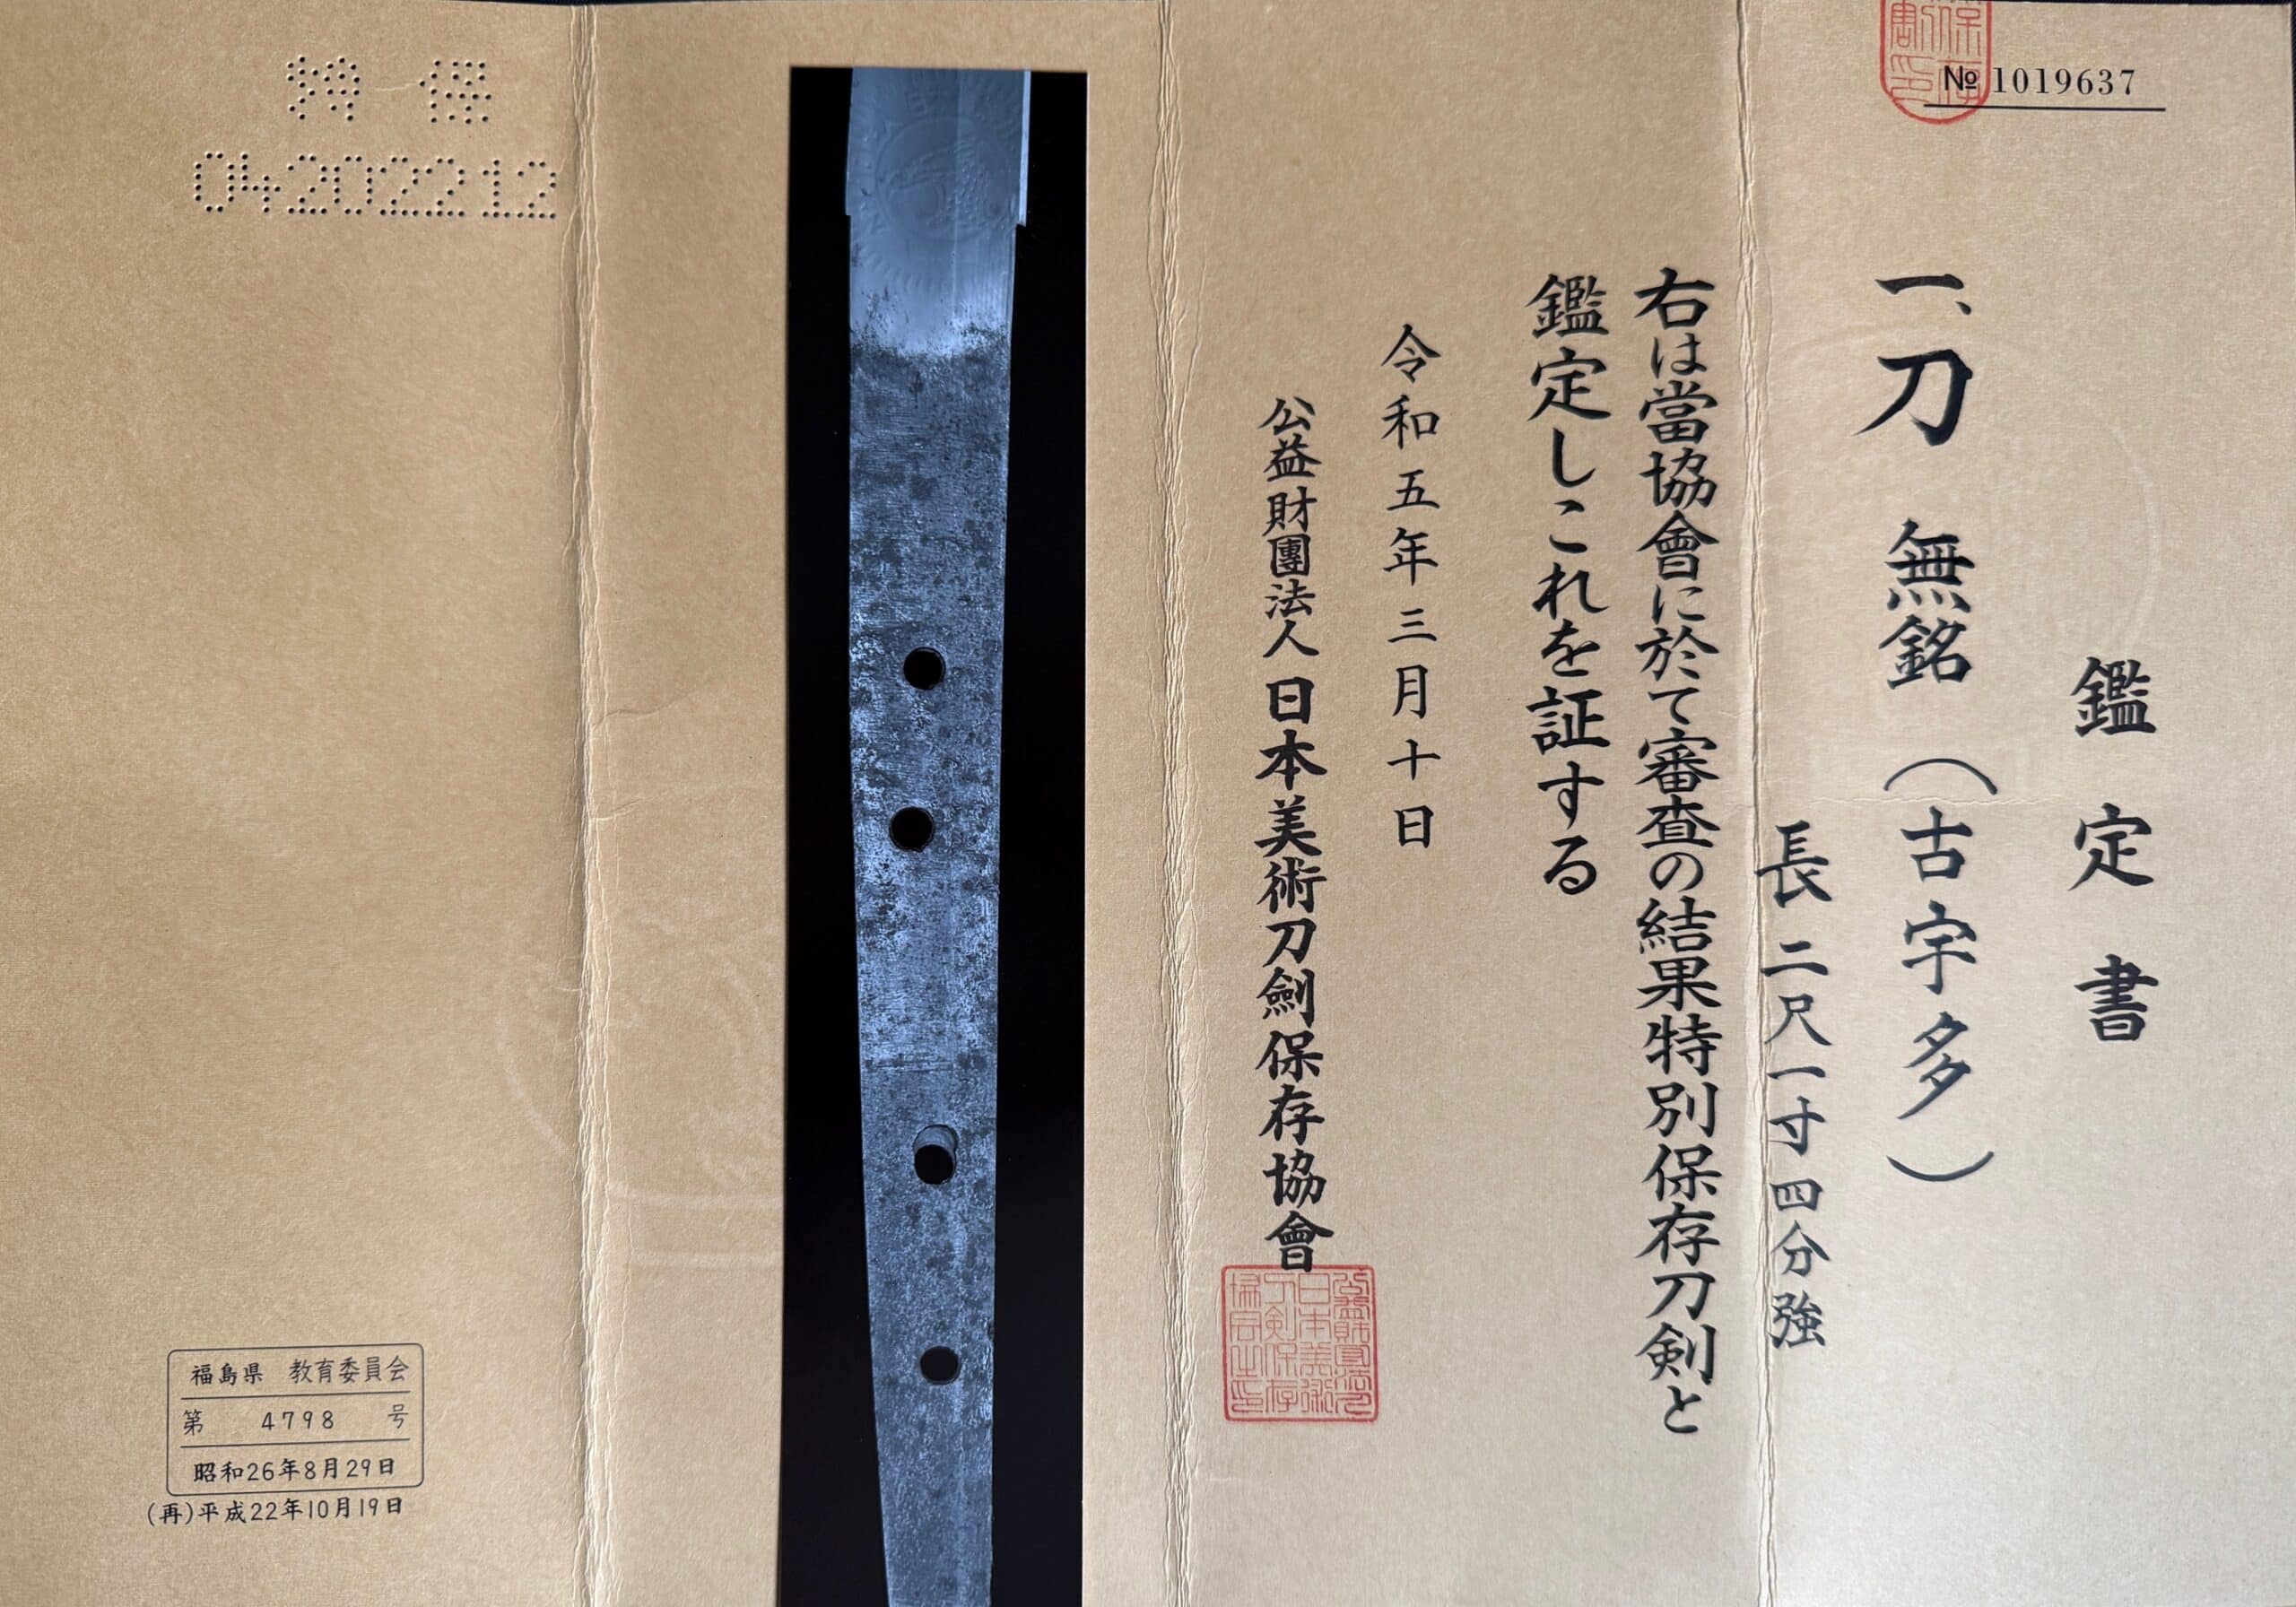 № 1019637
鑑定書
一、刀 無銘(古宇多)
長二尺一寸四分強
右は當協會に於て審査の結果特別保存刀剣と
鑑定しこれを証する
令和五年三月十日
公益財團法人日本美術刀劍保存協會
特保
04202212
福島県 教育委員会
第 4798 号
昭和26年8月29日
(再)平成22年10月19日